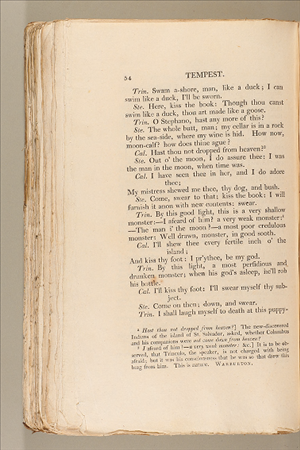 54 TEMPEST.
Trin. Swam a-shore, man, like a duck; I can
swim like a duck, I'll be sworn.
Ste. Here, kiss the book: Though thou canst
swim like a duck, thou art made like a goose.
Trin. O Stephano, hast any more of this?
Ste. The whole butt, man; my cellar is in a rock
by the sea-side, where my wine is hid. How now,
moon-calf? how does thine ague?
Cal. Hast thou not dropped from heaven?
Ste. Out o' the moon, I do assure thee: I was
the man in the moon, when time was.
Cal. I have seen thee in her, and I do adore
thee;
My mistress shewed me thee, thy dog, and bush.
Ste. Come, swear to that; kiss the book: I will
furnish it anon with new contents: swear.
Trin. By this good light, this is a very shallow
monster:—I afeard of him? a very weak monster:
—The man i' the moon?—a most poor credulous
monster: Well drawn, monster, in good sooth.
Cal. I'll shew thee every fertile inch o' the
island;
And kiss thy foot: I pr'ythee, be my god.
Trin. By this light, a most perfidious and
drunken monster; when his god's asleep, he'll rob
his bottle.
Cal. I'll kiss thy foot: I'll swear myself thy sub-
ject.
Ste. Come on then; down, and swear.
Trin. I shall laugh myself to death at this puppy-
Hast thou not dropped from heaven?] The new-discovered
Indians of the island of St. Salvador, asked, whether Columbus
and his companions were not come down from heaven?
I afeard of him?—a very weak monster: &c.] It is to be ob-
served, that Trinculo, the speaker, is not charged with being
afraid; but it was his consciousness that he was so that drew this
brag from him. This is nature. WARBURTON.